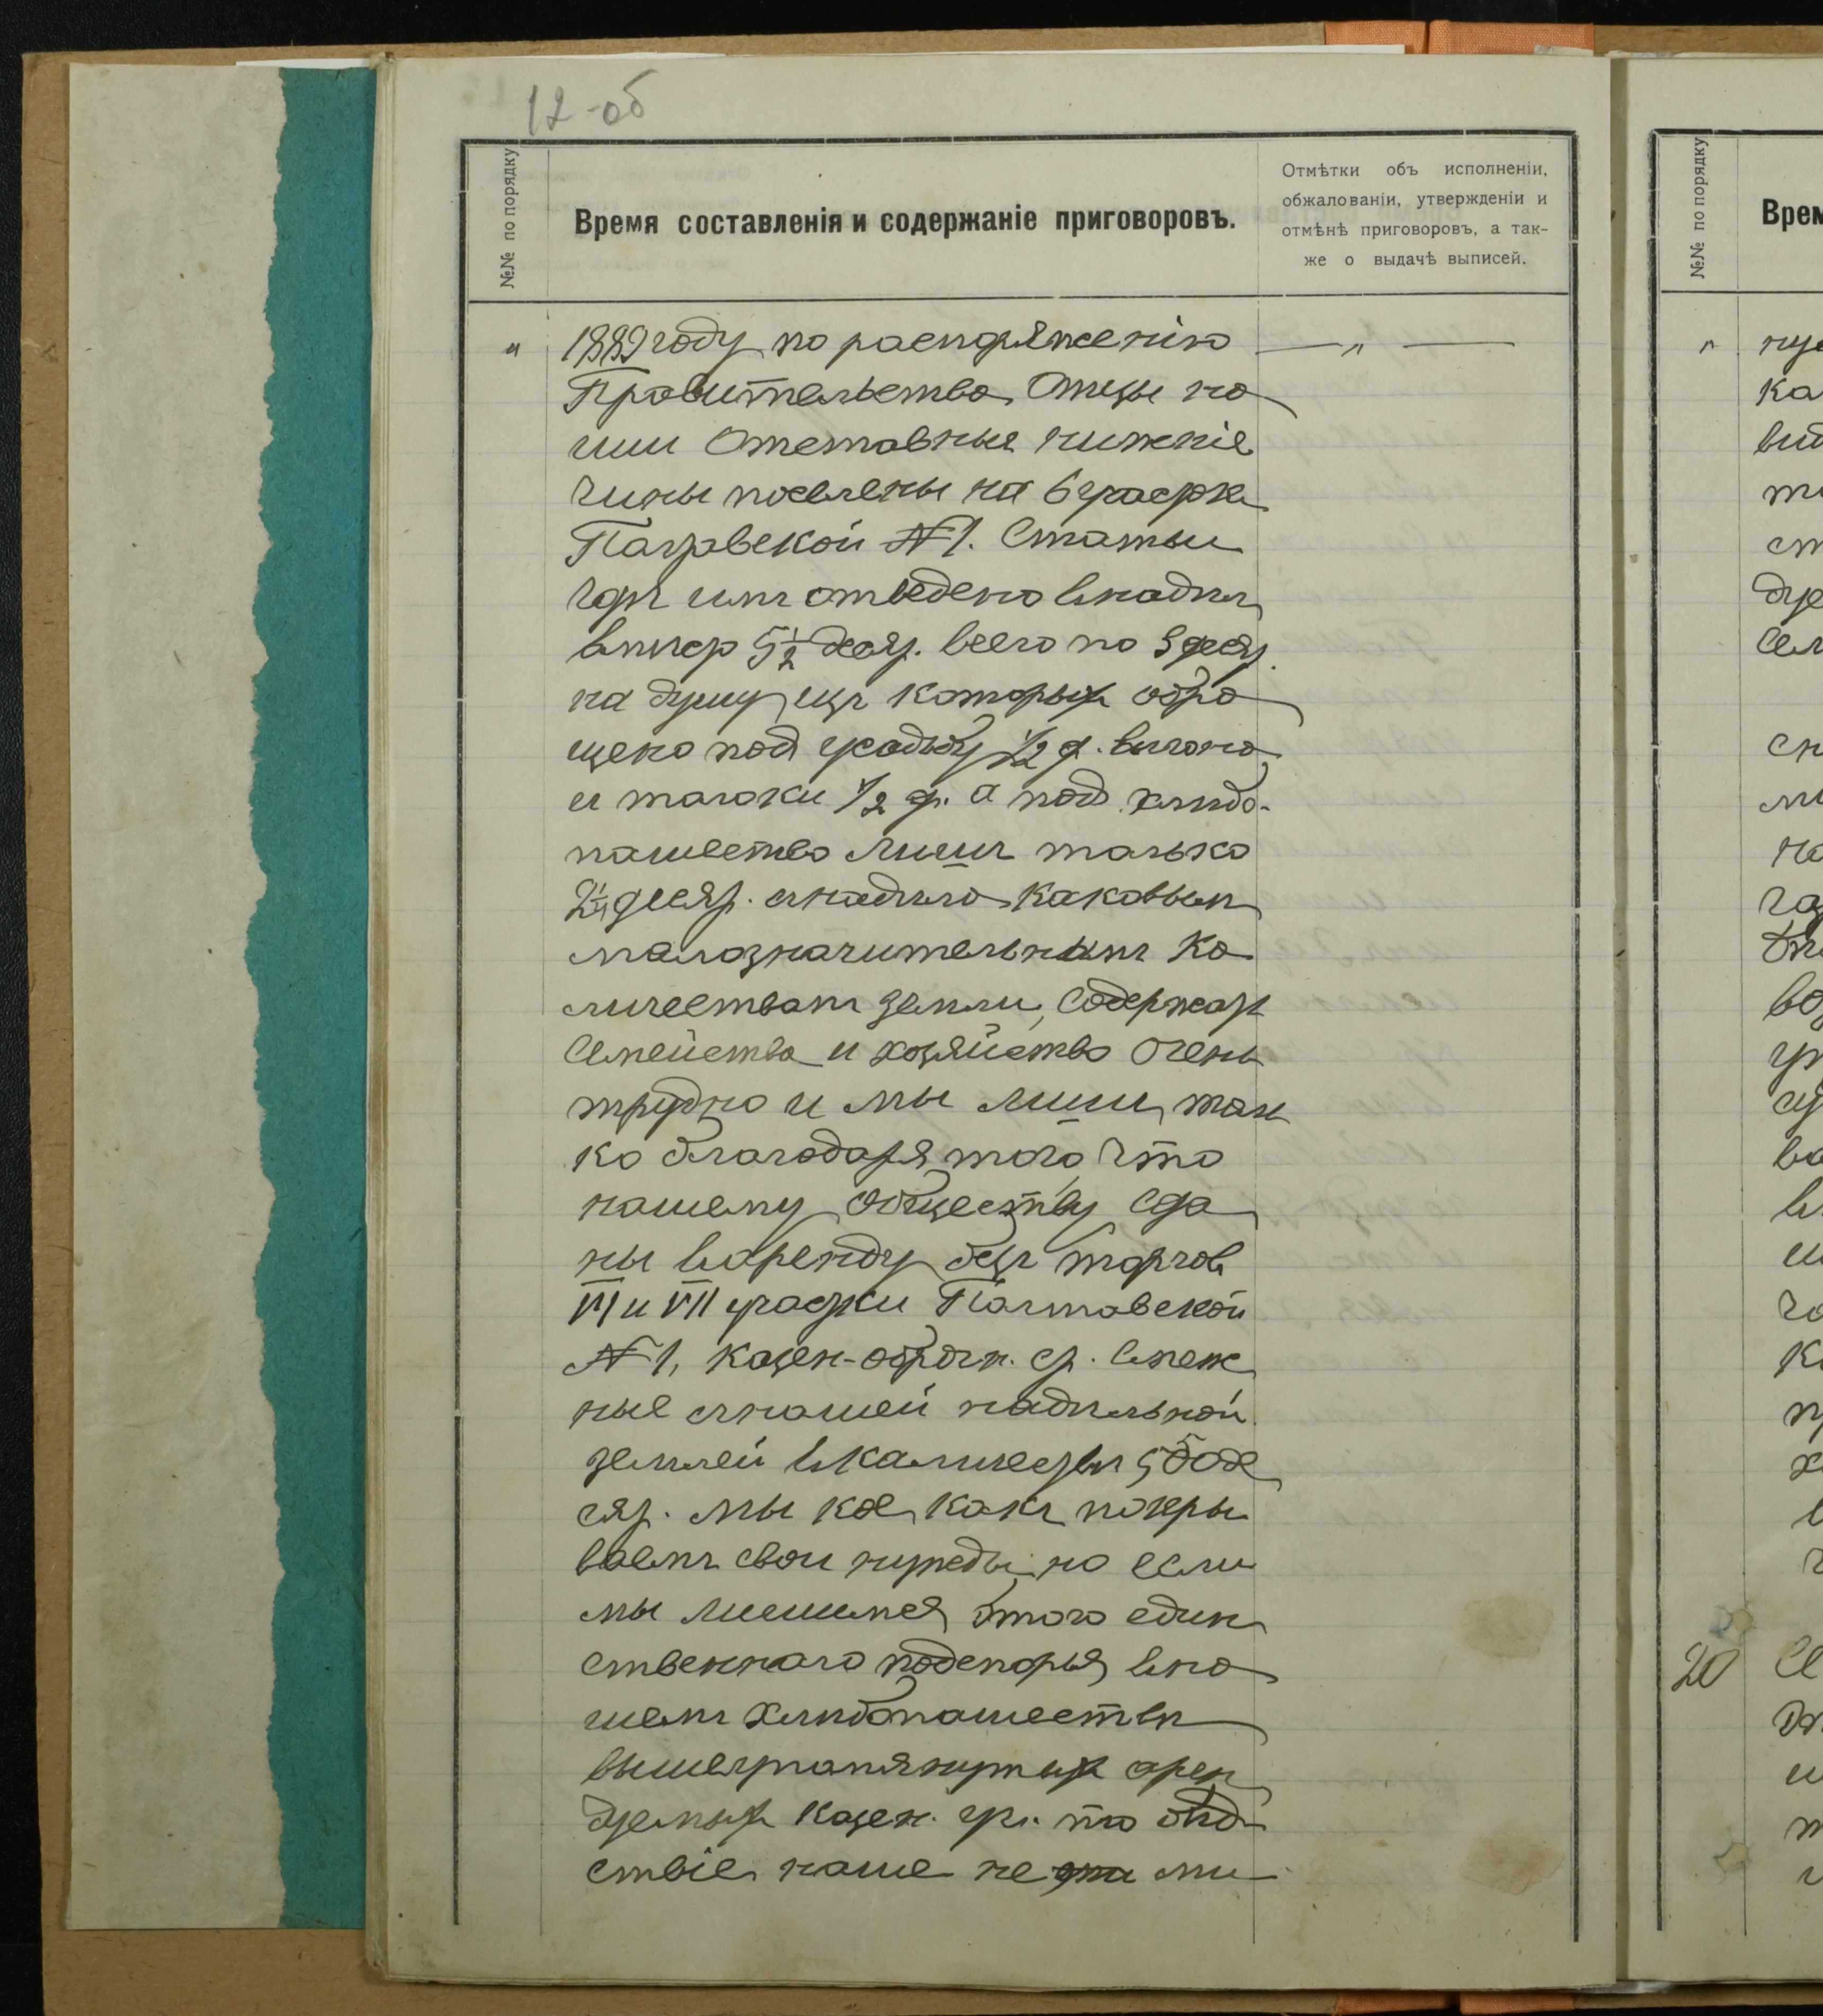 12-об
№№ по порядку
Время составленія и содержаніе приговоровъ.
Отмѣтки объ исполненіи,
обжалованіи, утвержденіи и
отмѣнѣ приговоровъ, а так-
же о выдачѣ выписей.
" 1889 году по распоряженію — " —
Правительства, Отцы на
ши Отставныя нижніе
Чины поселены на 6 участкѣ
Полтавской № 1. Статьи
гдѣ имъ отведено внадѣл
5 1/2 десят. всего по 3 десят.
на душу изъ которыхъ обра
щено под усадьбу 1/2 д. выгона
и толоки 1/2 д. а под хлѣбо-
пашество лишь только
десят. снадѣла каковым
малозначительнымъ ко
личествомъ земли, Содержат
Семейства и хозяйство очень
трудно и мы лиш толь
ко благодаря того что
нашему обществу сда
ны варенду безъ торгов
VI и VII участки Полтавской
№ 1, казен-оброчн. ст. смеж
ные снашей надѣльной
землей вколичествѣ де
сят. мы кое какъ покры
ваемъ свои нужды, но если
мы лишимся этого един
ственного подспорья вна
шемъ хлѣбопашествѣ
вышеупомянутых арен
дуемых казен. уч. то бѣд
ствіе наше не ми
№№ по порядку
Врем
"
ка
20